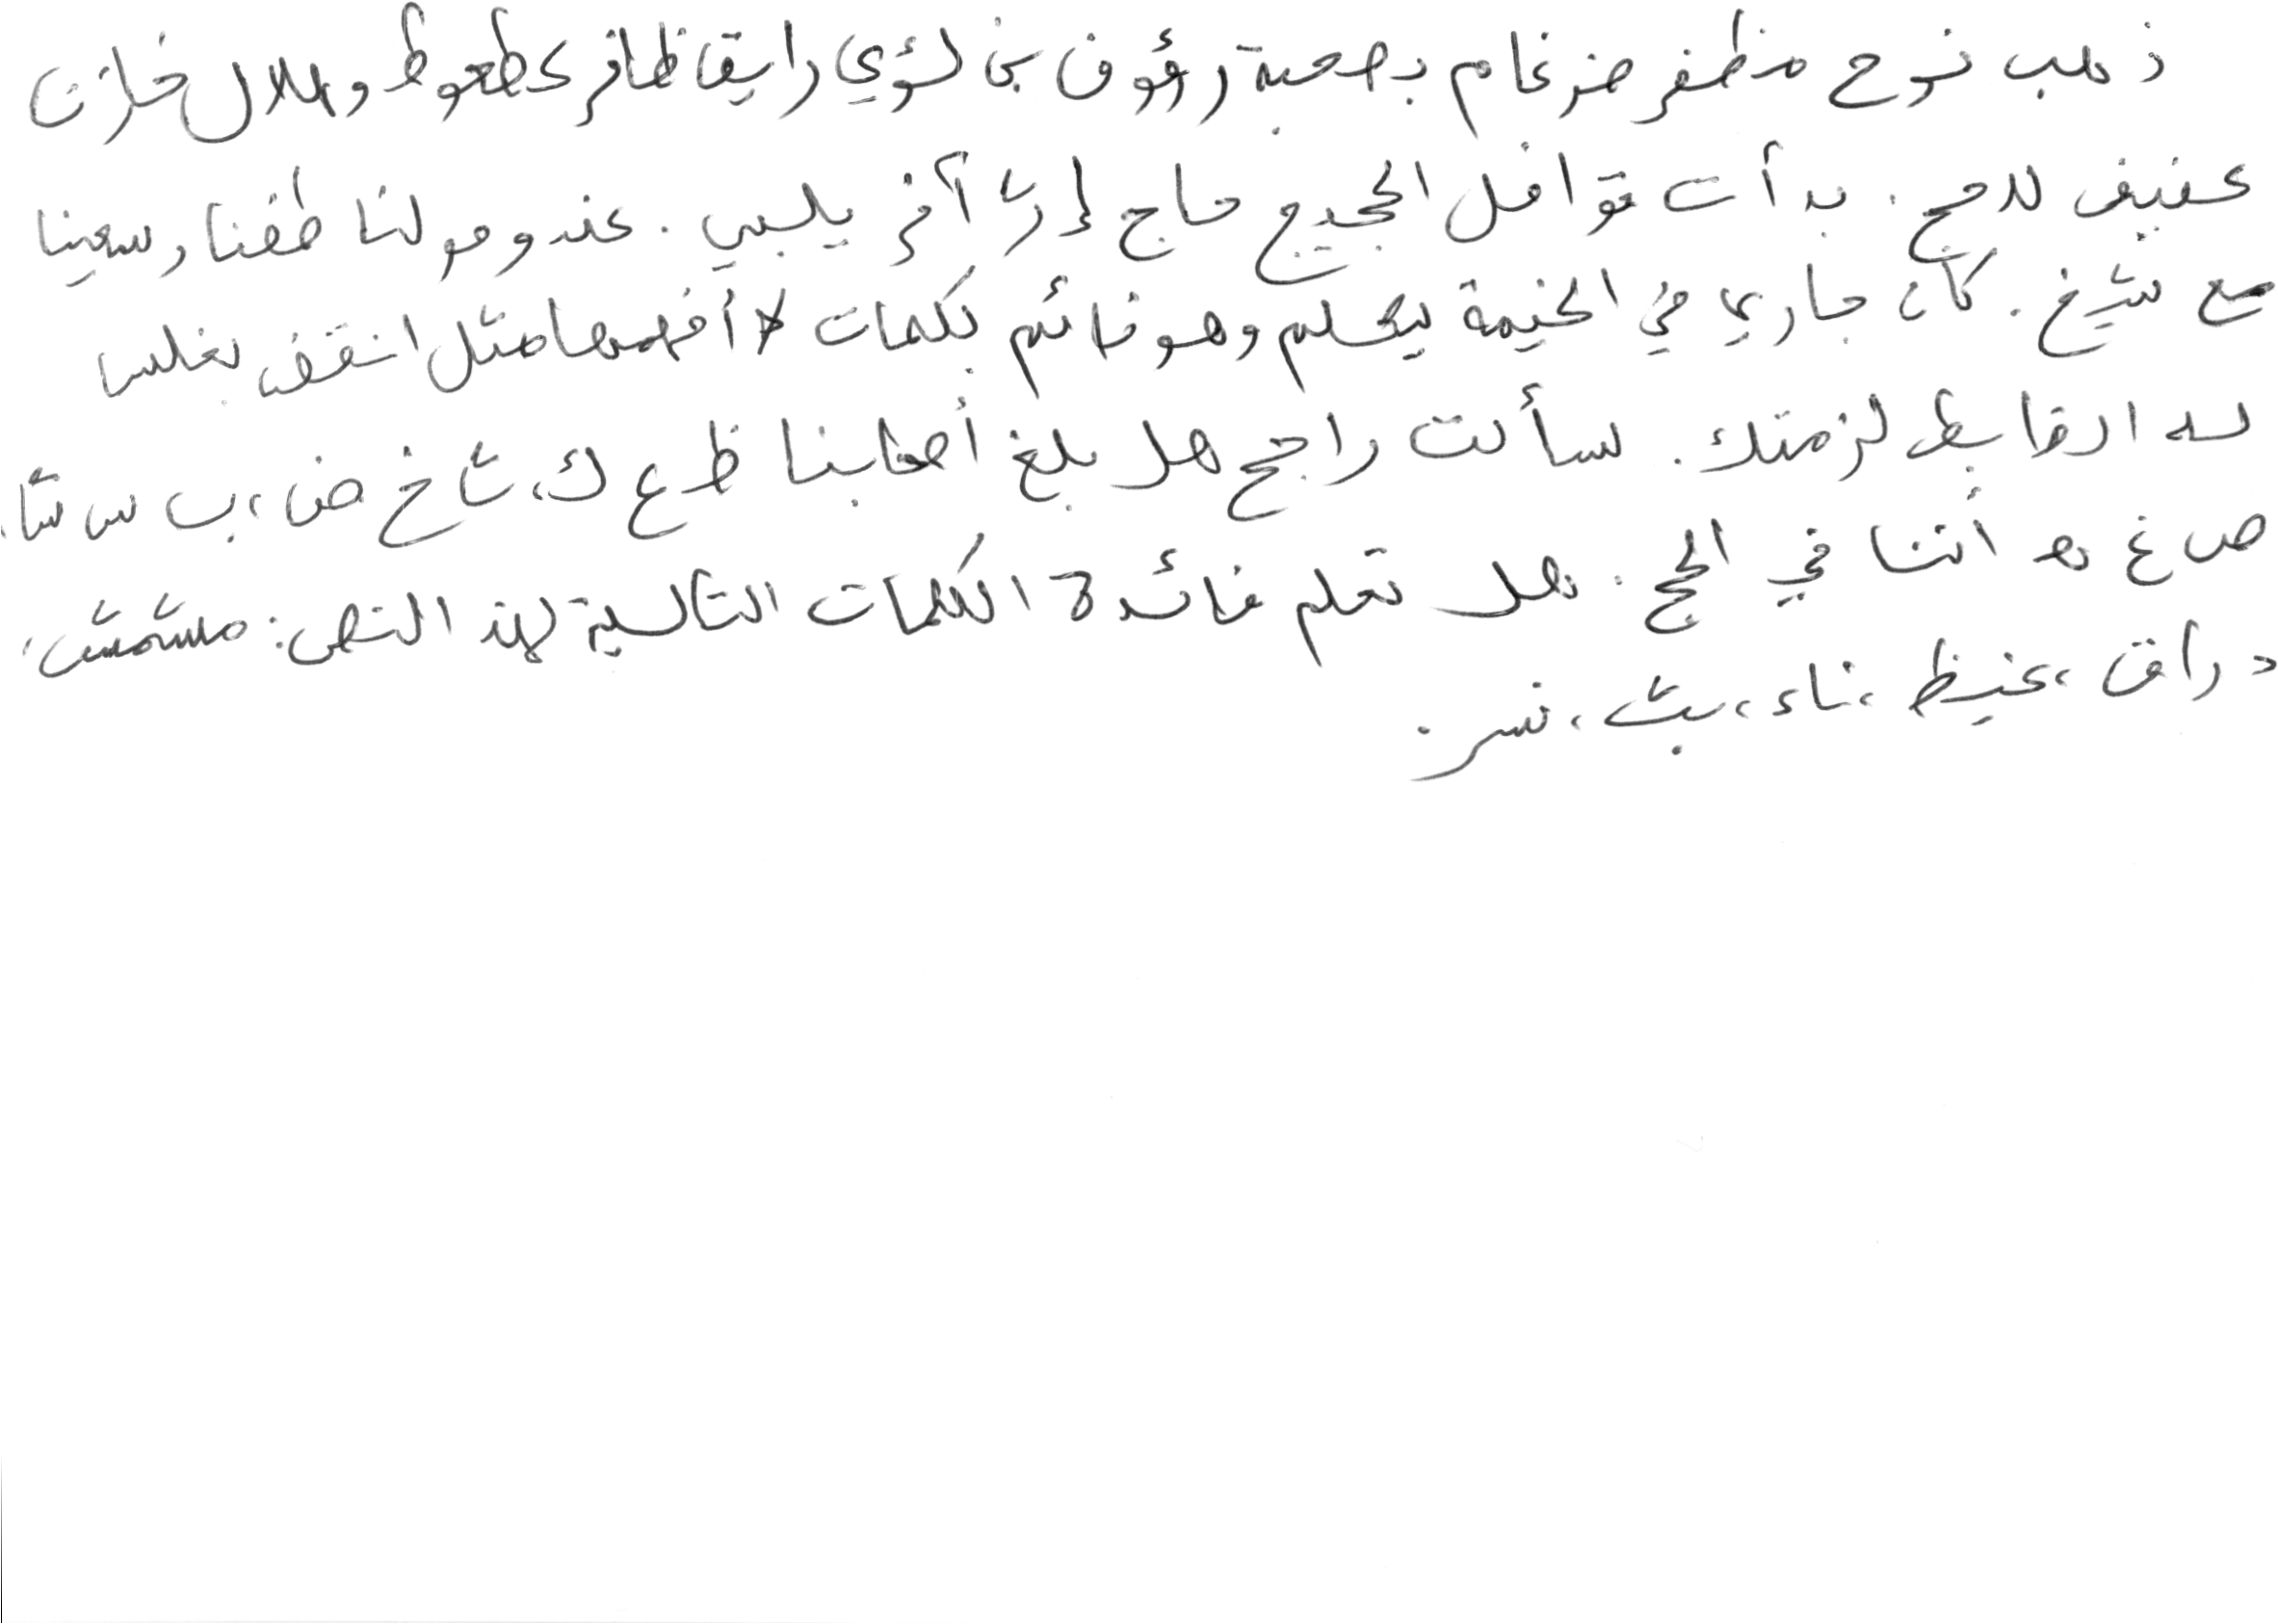 ذهب نوح مظفر ضرغام بصحبة رؤوف بن لؤي رايقا ظافر عطعوط وهلال خازن
عفيف للحج. بدأت قوافل الحجيج حاج إثر آخر يلبي. عند وصولنا طفنا وسعينا
مع شيخ. كان جاري في الخيمة يتكلم وهو نائم بكلمات لا أفهمها مثل انقض بغلس
سألت راجح هل بلغ أصحابنا ظ ع ك، ش ا خ ض، ب س شا،
ص غ هـ أننا في الحج. هل تعلم فائدة الكلمات التالية لهذ النص: مشمش،
دراق، غيظ، ناء، بث، نسر.